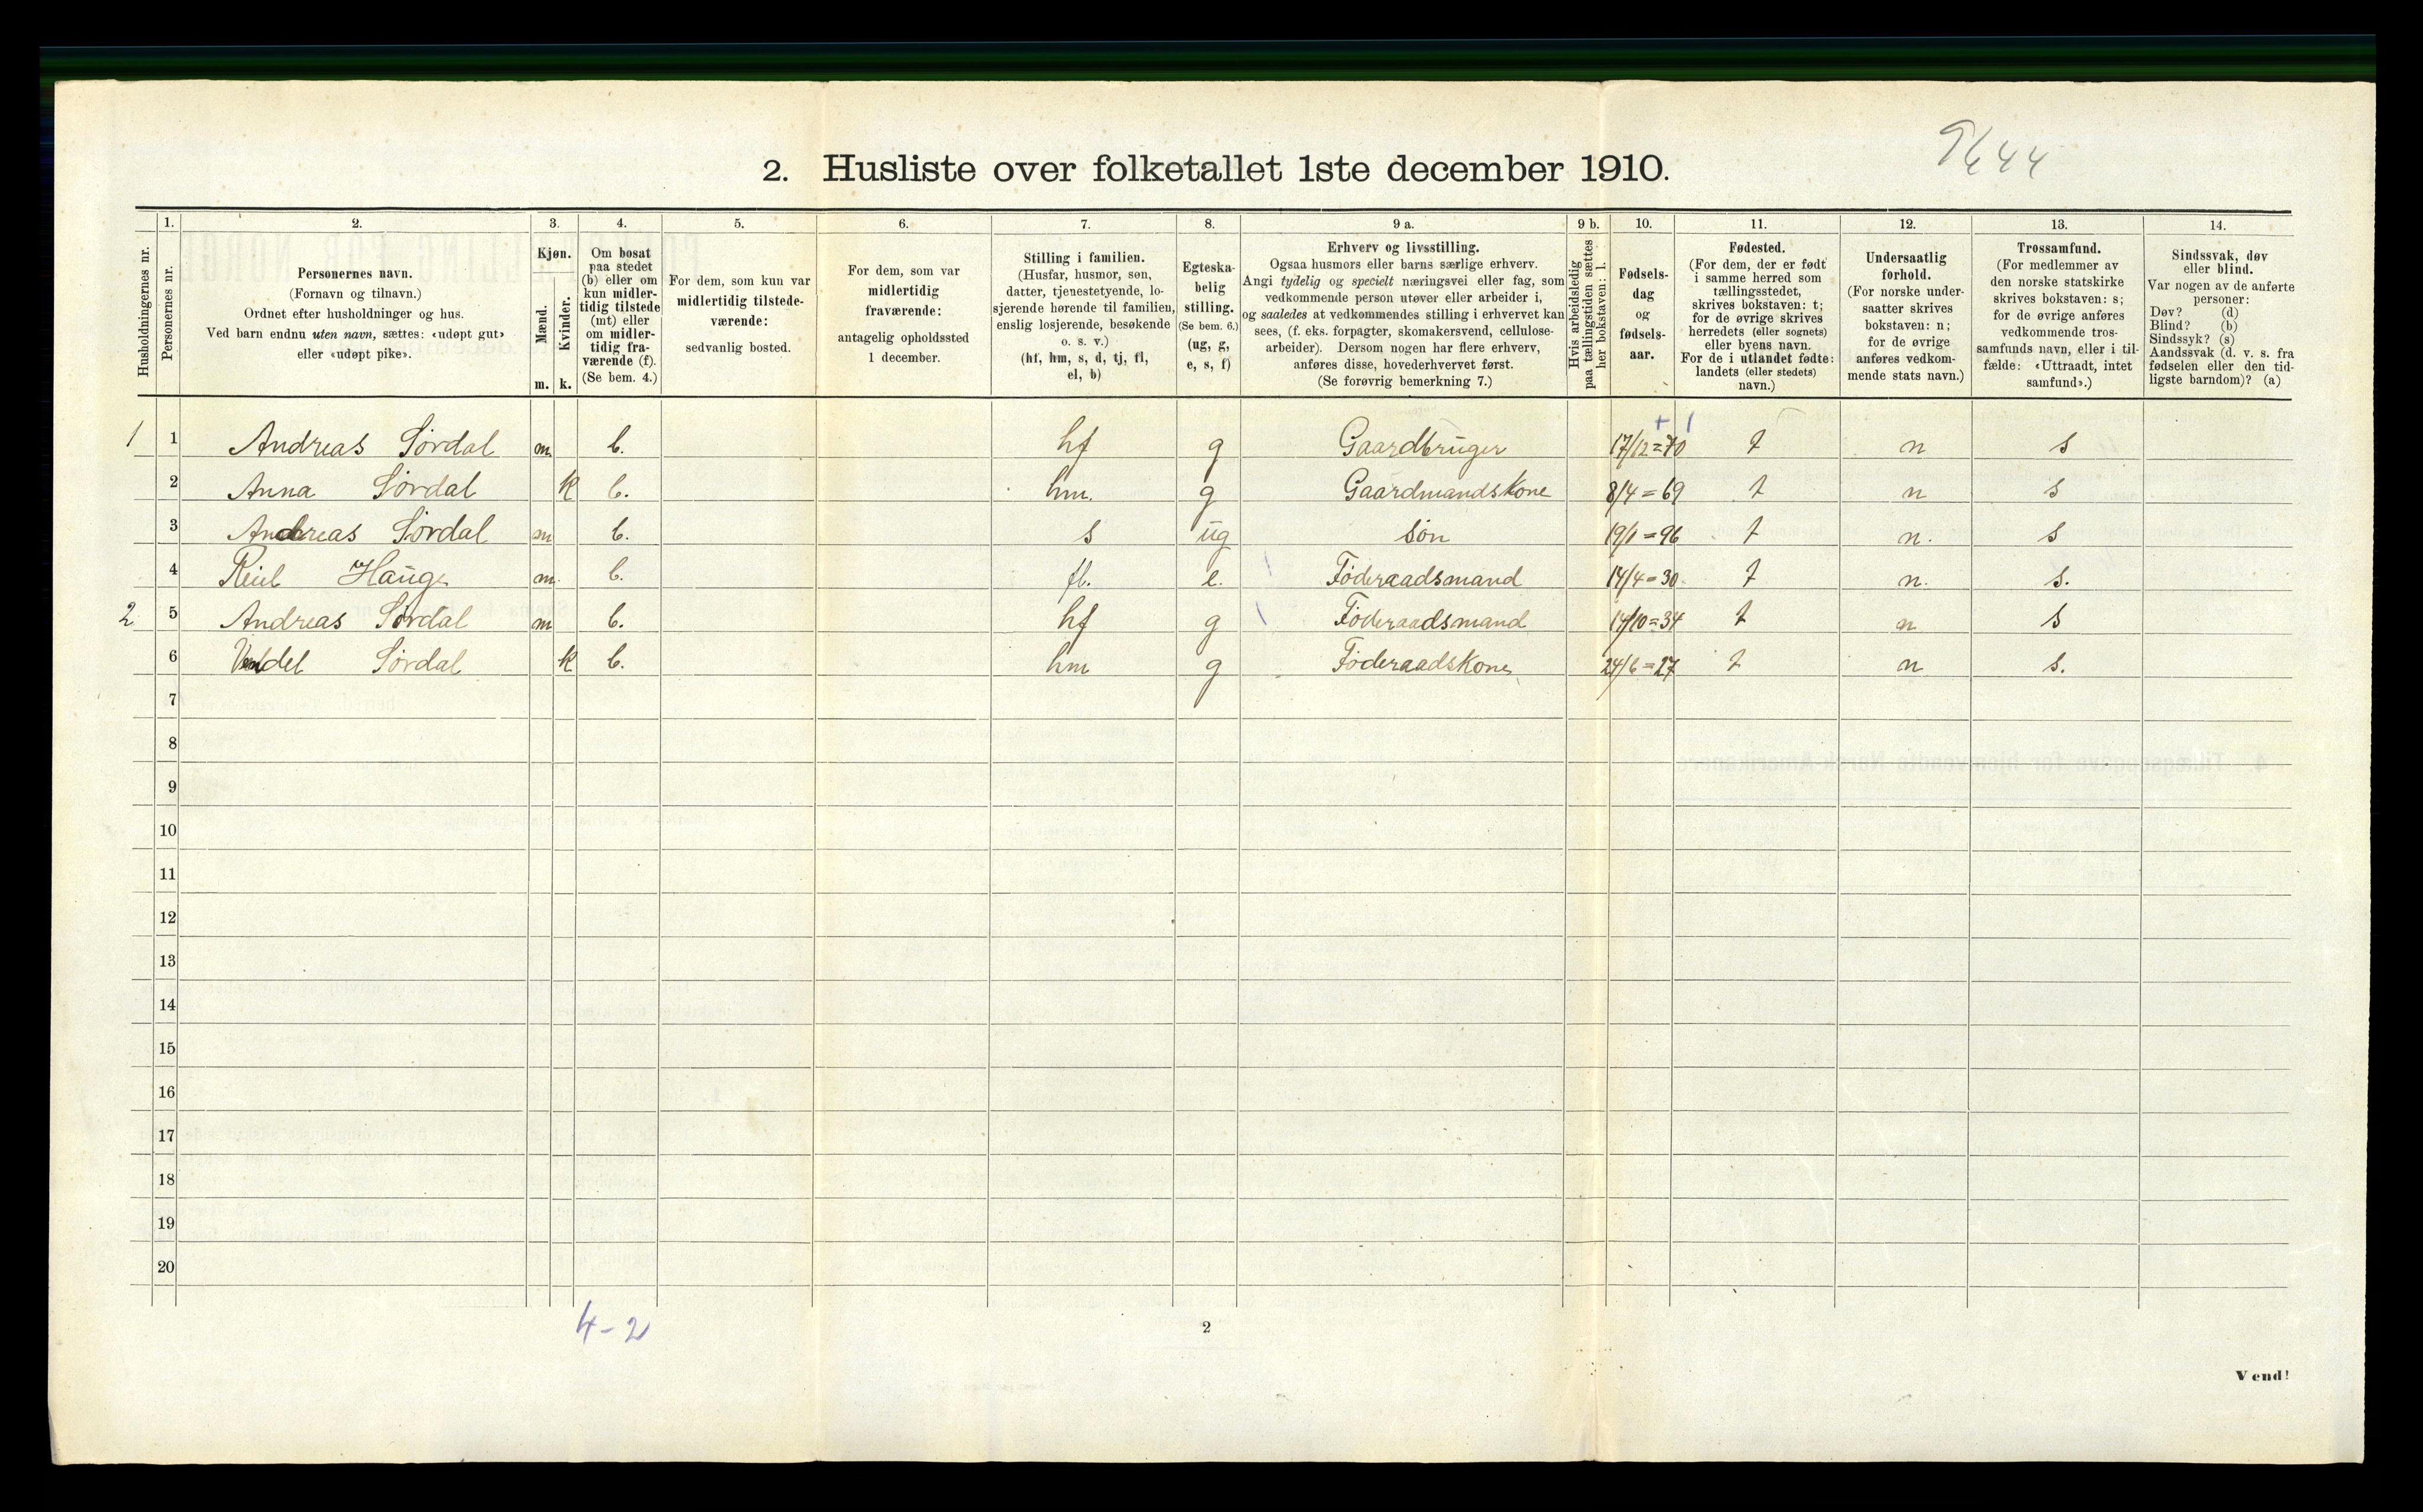 9644
2. Husliste over folketallet 1ste december 1910.
Husholdningernes nr.
1. Personernes nr.
2. Personernes navn. (Fornavn og tilnavn.) Ordnet efter husholdninger og hus. Ved barn endnu uten navn, sættes: «udøpt gut» eller «udøpt pike».
3. Kjøn. Mænd. m. Kvinder. k.
4. Om bosat paa stedet (b) eller om kun midlertidig tilstede (mt) eller om midlertidig fraværende (f). (Se bem. 4.)
5. For dem, som kun var midlertidig tilstedeværende: sedvanlig bosted.
6. For dem, som var midlertidig fraværende: antagelig opholdssted 1 december.
7. Stilling i familien. (Husfar, husmor, søn, datter, tjenestetyende, losjerende hørende til familien, enslig losjerende, besøkende o. s. v.) (hf, hm, s, d, tj, fl, el, b)
8. Egteskabelig stilling. (Se bem. 6.) (ug, g, e, s, f)
9 a. Erhverv og livsstilling. Ogsaa husmors eller barns særlige erhverv. Angi tydelig og specielt næringsvei eller fag, som vedkommende person utøver eller arbeider i, og saaledes at vedkommendes stilling i erhvervet kan sees, (f. eks. forpagter, skomakersvend, cellulosearbeider). Dersom nogen har flere erhverv, anføres disse, hovederhvervet først. (Se forøvrig bemerkning 7.)
9 b. Hvis arbeidsledig paa tællingstiden sættes her bokstaven: l.
10. Fødselsdag og fødselsaar.
11. Fødested. (For dem, der er født i samme herred som tællingsstedet, skrives bokstaven: t; for de øvrige skrives herredets (eller sognets) eller byens navn. For de i utlandet fødte: landets (eller stedets) navn.)
12. Undersaatlig forhold. (For norske undersaatter skrives bokstaven: n; for de øvrige anføres vedkommende stats navn.)
13. Trossamfund. (For medlemmer av den norske statskirke skrives bokstaven: s; for de øvrige anføres vedkommende trossamfunds navn, eller i tilfælde: «Uttraadt, intet samfund».)
14. Sindssvak, døv eller blind. Var nogen av de anførte personer: Døv? (d) Blind? (b) Sindssyk? (s) Aandssvak (d. v. s. fra fødselen eller den tidligste barndom)? (a)
1 1 Andreas Sørdal m b. hf g Gaardbruger 17/12=70 t n s
2 Anna Sørdal k b. hm. g Gaardmandskone 8/4=69 t n s
3 Andreas Sørdal m b. s ug søn 19/1=96 t n. s
4 Hauge m. b. fl. e. Føderaadsmand 14/4=30 t n. s.
2 5 Andreas Sørdal m b. hf g Føderaadsmand 14/10=34 t n s
6 Sørdal k b. hm g Føderaadskone 24/6=27 t n s.
7
8
9
10
11
12
13
14
15
16
17
18
19
20
4-2
2
Vend!